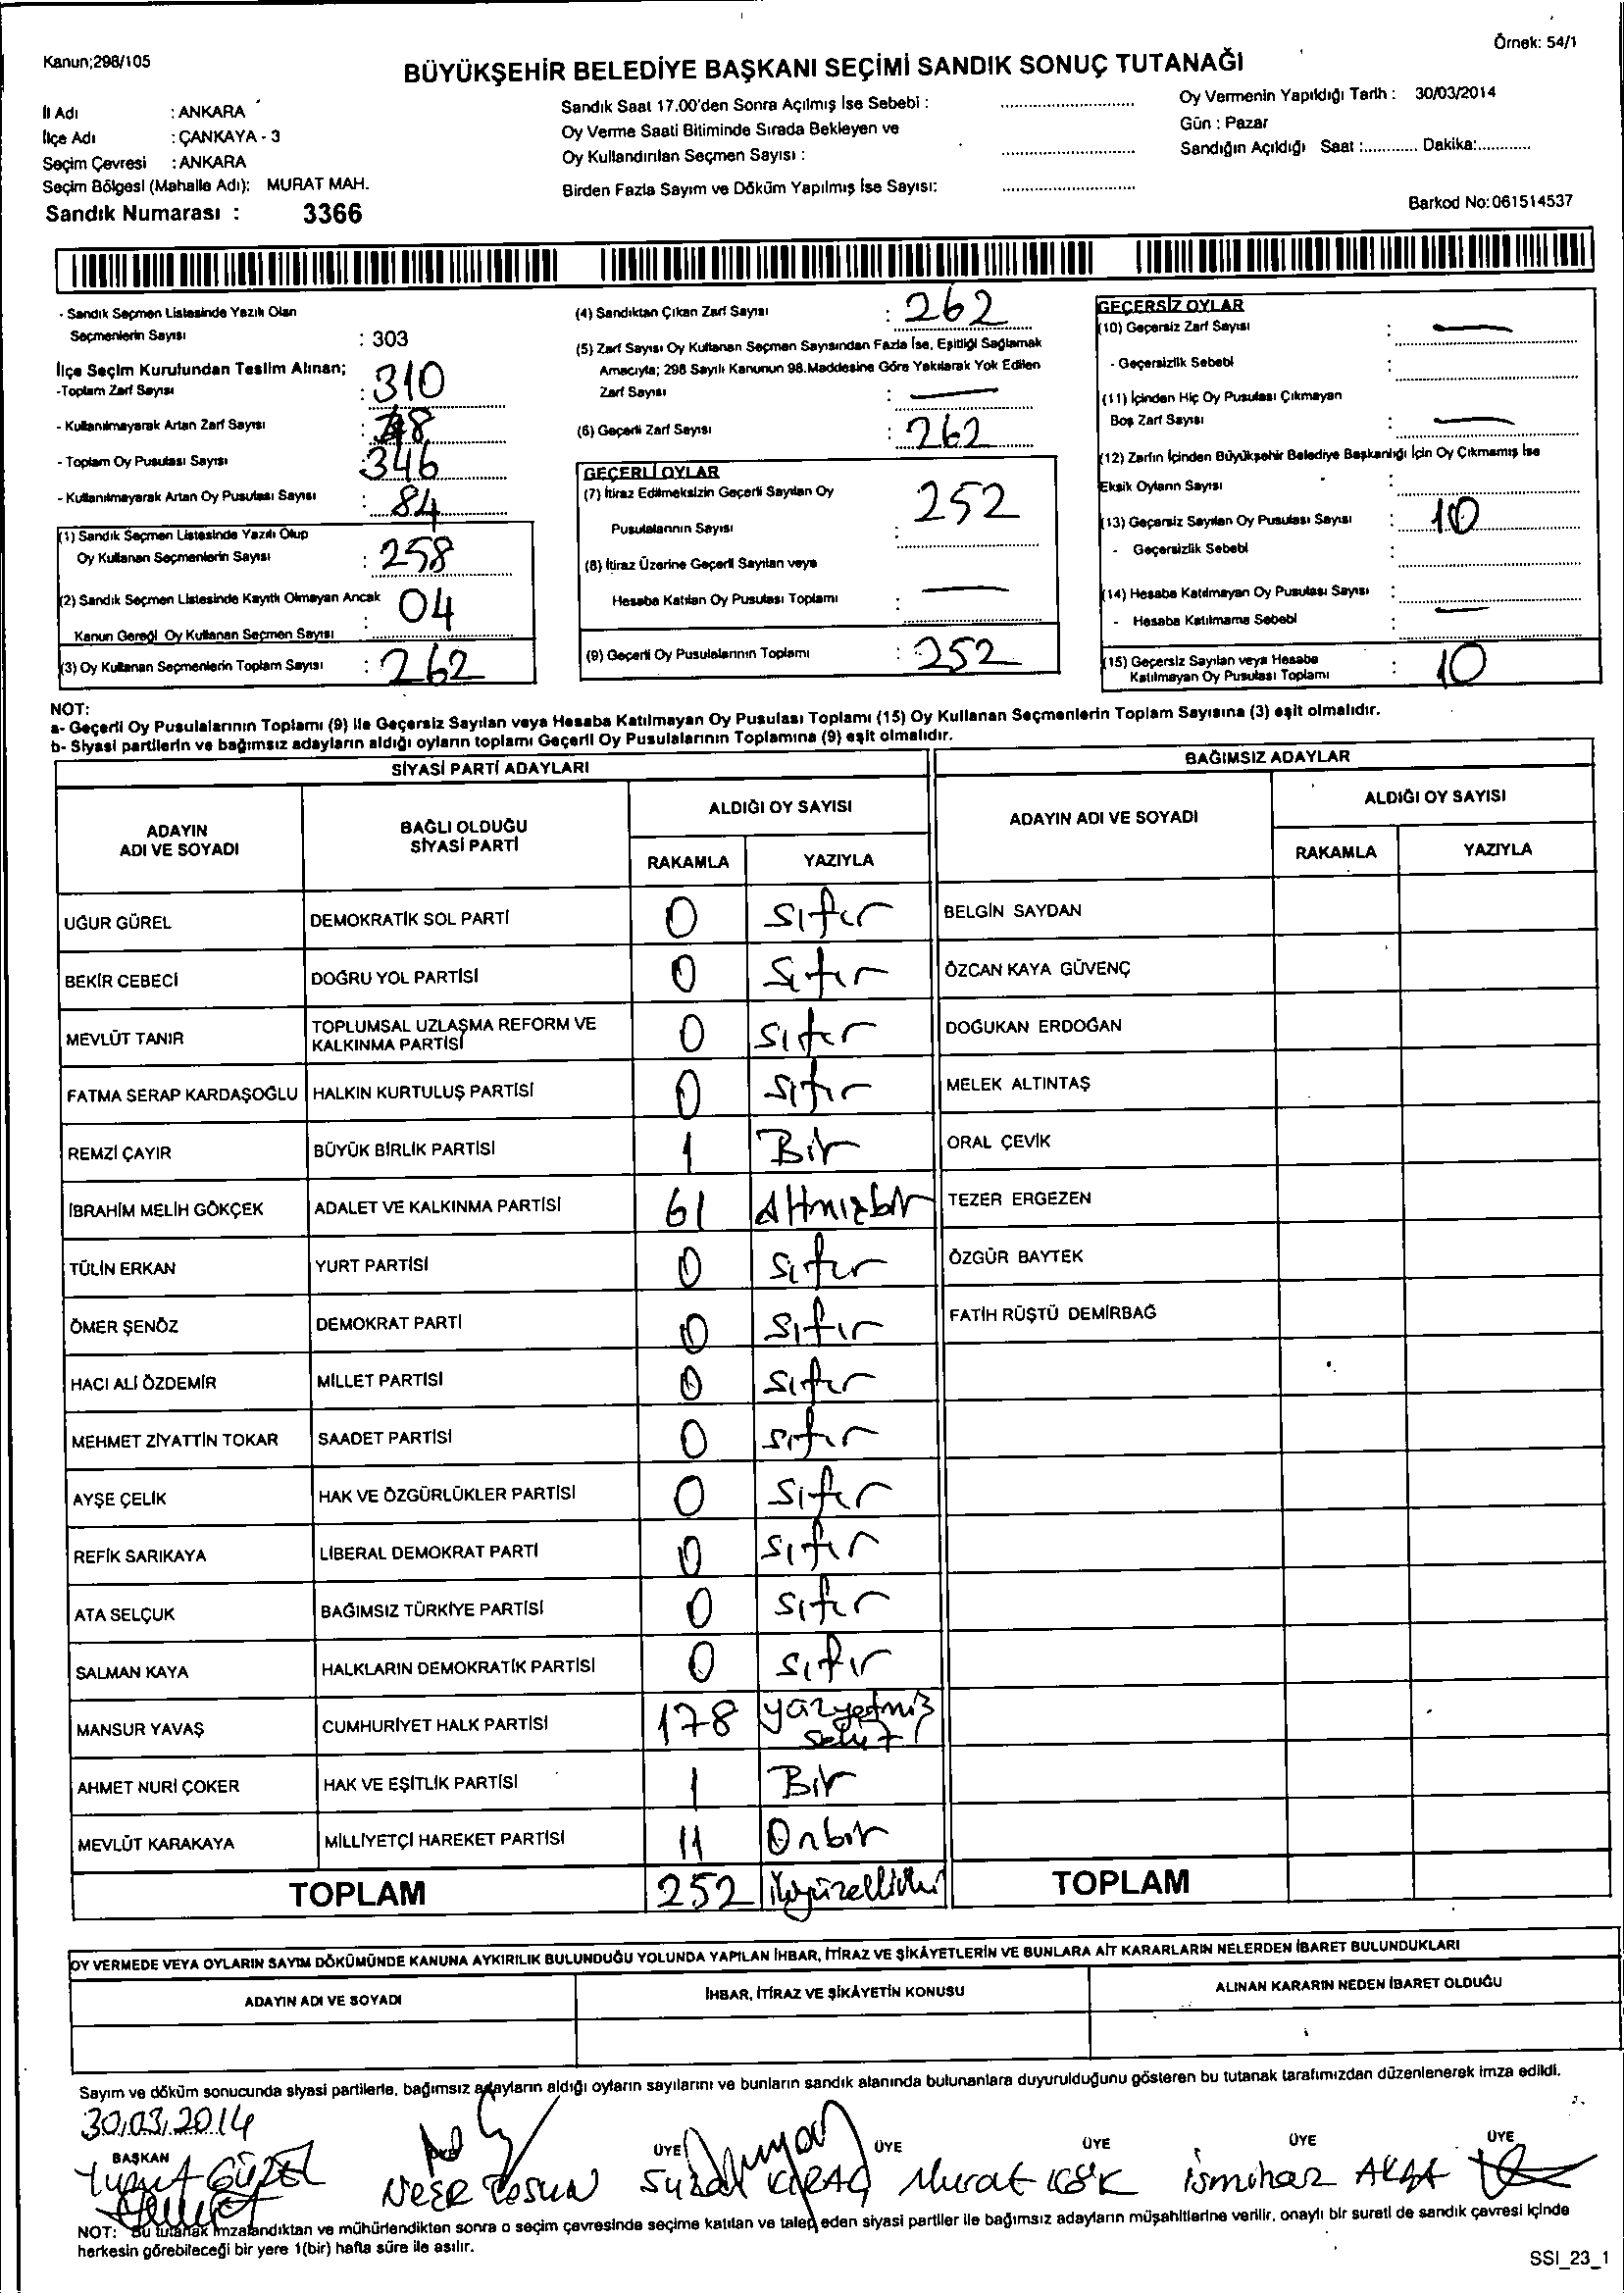 Kanun;298/105
Örnek: 54/1
BÜYÜKŞEHİR BELEDİYE BAŞKANI SEÇİMİ SANDIK SONUÇ TUTANAĞI
İl Adı : ANKARA
İlçe Adı : ÇANKAYA - 3
Seçim Çevresi : ANKARA
Seçim Bölgesi (Mahalle Adı): MURAT MAH.
Sandık Numarası : 3366
Sandık Saat 17.00'den Sonra Açılmış İse Sebebi :
Oy Verme Saati Bitiminde Sırada Bekleyen ve
Oy Kullandırılan Seçmen Sayısı :
Birden Fazla Sayım ve Döküm Yapılmış İse Sayısı:
Oy Vermenin Yapıldığı Tarih : 30/03/2014
Gün : Pazar
Sandığın Açıldığı Saat :............ Dakika:............
Barkod No:061514537
- Sandık Seçmen Listesinde Yazılı Olan
Seçmenlerin Sayısı : 303
İlçe Seçim Kurulundan Teslim Alınan;
-Toplam Zarf Sayısı : 310
- Kullanılmayarak Artan Zarf Sayısı :
- Toplam Oy Pusulası Sayısı : 346
- Kullanılmayarak Artan Oy Pusulası Sayısı : 84
(1) Sandık Seçmen Listesinde Yazılı Olup
Oy Kullanan Seçmenlerin Sayısı : 258
(2) Sandık Seçmen Listesinde Kayıtlı Olmayan Ancak
Kanun Gereği Oy Kullanan Seçmen Sayısı : 04
(3) Oy Kullanan Seçmenlerin Toplam Sayısı : 262
(4) Sandıktan Çıkan Zarf Sayısı : 262
(5) Zarf Sayısı Oy Kullanan Seçmen Sayısından Fazla İse, Eşitliği Sağlamak
Amacıyla; 298 Sayılı Kanunun 98.Maddesine Göre Yakılarak Yok Edilen
Zarf Sayısı : —
(6) Geçerli Zarf Sayısı : 262
GEÇERLİ OYLAR
(7) İtiraz Edilmeksizin Geçerli Sayılan Oy
Pusulalarının Sayısı : 252
(8) İtiraz Üzerine Geçerli Sayılan veya
Hesaba Katılan Oy Pusulası Toplamı : —
(9) Geçerli Oy Pusulalarının Toplamı : 252
GEÇERSİZ OYLAR
(10) Geçersiz Zarf Sayısı : —
- Geçersizlik Sebebi :
(11) İçinden Hiç Oy Pusulası Çıkmayan
Boş Zarf Sayısı : —
(12) Zarfın İçinden Büyükşehir Belediye Başkanlığı İçin Oy Çıkmamış İse
Eksik Oyların Sayısı :
(13) Geçersiz Sayılan Oy Pusulası Sayısı : 10
- Geçersizlik Sebebi :
(14) Hesaba Katılmayan Oy Pusulası Sayısı : —
- Hesaba Katılmama Sebebi :
(15) Geçersiz Sayılan veya Hesaba
Katılmayan Oy Pusulası Toplamı : 10
NOT:
a- Geçerli Oy Pusulalarının Toplamı (9) ile Geçersiz Sayılan veya Hesaba Katılmayan Oy Pusulası Toplamı (15) Oy Kullanan Seçmenlerin Toplam Sayısına (3) eşit olmalıdır.
b- Siyasi partilerin ve bağımsız adayların aldığı oyların toplamı Geçerli Oy Pusulalarının Toplamına (9) eşit olmalıdır.
SİYASİ PARTİ ADAYLARI
BAĞIMSIZ ADAYLAR
ADAYIN ADI VE SOYADI
BAĞLI OLDUĞU SİYASİ PARTİ
ALDIĞI OY SAYISI
RAKAMLA YAZIYLA
ADAYIN ADI VE SOYADI
ALDIĞI OY SAYISI
RAKAMLA YAZIYLA
UĞUR GÜREL DEMOKRATİK SOL PARTİ 0 Sıfır BELGİN SAYDAN
BEKİR CEBECİ DOĞRU YOL PARTİSİ 0 Sıfır ÖZCAN KAYA GÜVENÇ
MEVLÜT TANIR TOPLUMSAL UZLAŞMA REFORM VE KALKINMA PARTİSİ 0 Sıfır DOĞUKAN ERDOĞAN
FATMA SERAP KARDAŞOĞLU HALKIN KURTULUŞ PARTİSİ 0 Sıfır MELEK ALTINTAŞ
REMZİ ÇAYIR BÜYÜK BİRLİK PARTİSİ 1 Bir ORAL ÇEVİK
İBRAHİM MELİH GÖKÇEK ADALET VE KALKINMA PARTİSİ 61 Altmışbir TEZER ERGEZEN
TÜLİN ERKAN YURT PARTİSİ 0 Sıfır ÖZGÜR BAYTEK
ÖMER ŞENÖZ DEMOKRAT PARTİ 0 Sıfır FATİH RÜŞTÜ DEMİRBAĞ
HACI ALİ ÖZDEMİR MİLLET PARTİSİ 0 Sıfır
MEHMET ZİYATTİN TOKAR SAADET PARTİSİ 0 Sıfır
AYŞE ÇELİK HAK VE ÖZGÜRLÜKLER PARTİSİ 0 Sıfır
REFİK SARIKAYA LİBERAL DEMOKRAT PARTİ 0 Sıfır
ATA SELÇUK BAĞIMSIZ TÜRKİYE PARTİSİ 0 Sıfır
SALMAN KAYA HALKLARIN DEMOKRATİK PARTİSİ 0 Sıfır
MANSUR YAVAŞ CUMHURİYET HALK PARTİSİ 178 yüzyetmiş sekiz
AHMET NURİ ÇOKER HAK VE EŞİTLİK PARTİSİ 1 Bir
MEVLÜT KARAKAYA MİLLİYETÇİ HAREKET PARTİSİ 11 Onbir
TOPLAM 252 ikiyüzelliiki TOPLAM
OY VERMEDE VEYA OYLARIN SAYIM DÖKÜMÜNDE KANUNA AYKIRILIK BULUNDUĞU YOLUNDA YAPILAN İHBAR, İTİRAZ VE ŞİKÂYETLERİN VE BUNLARA AİT KARARLARIN NELERDEN İBARET BULUNDUKLARI
ADAYIN ADI VE SOYADI İHBAR, İTİRAZ VE ŞİKÂYETİN KONUSU ALINAN KARARIN NEDEN İBARET OLDUĞU
Sayım ve döküm sonucunda siyasi partilerle, bağımsız adayların aldığı oyların sayılarını ve bunların sandık alanında bulunanlara duyurulduğunu gösteren bu tutanak tarafımızdan düzenlenerek imza edildi.
30.03.2014
BAŞKAN ÜYE ÜYE ÜYE ÜYE ÜYE
GÜZEL Neşe Tosun Suzan KIRAÇ Murat KÖK ismihan
NOT: Bu tutanak imzalandıktan ve mühürlendikten sonra o seçim çevresinde seçime katılan ve talep eden siyasi partiler ile bağımsız adayların müşahitlerine verilir, onaylı bir sureti de sandık çevresi içinde
herkesin görebileceği bir yere 1(bir) hafta süre ile asılır.
SSI_23_1